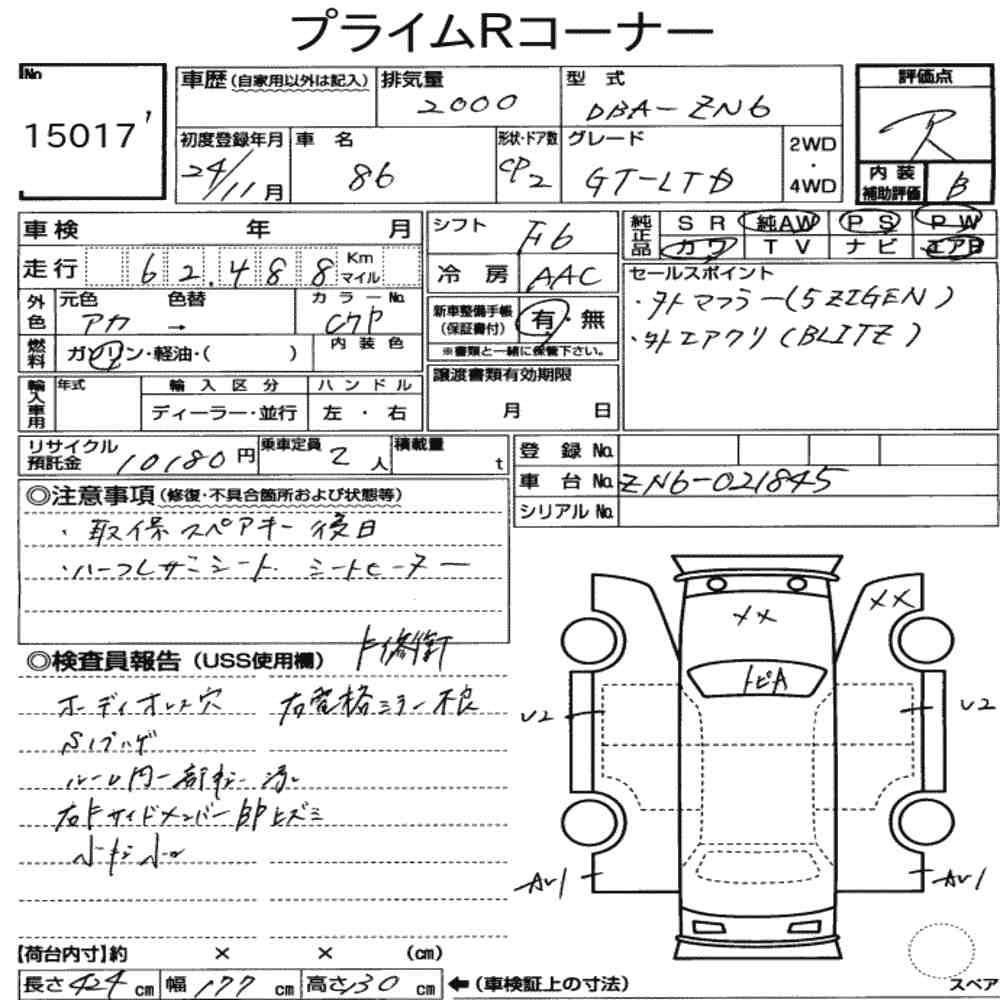 プライムRコーナー
No 15017 1
車歴 (自家用以外は記入) 排気量 2000 型式 DBA-ZN6
初度登録年月 24/11月 車名 86 形状・ドア数 CP2 グレード GT-LTD 2WD・4WD
評価点 R
内装補助評価 B
車検 年 月
走行 62,488 Km マイル
外色 元色 アカ → 色替 カラーNo. C7P
燃料 ガソリン・軽油・( ) 内装色
輸入車用 年式 輸入区分 ディーラー・並行 ハンドル 左・右
シフト F6
冷房 AAC
新車整備手帳 (保証書付) 有・無
※書類と一緒に保管下さい。
譲渡書類有効期限
月 日
純正品 SR 純AW PS PW
カワ TV ナビ エアB
セールスポイント
・外マフラー(5ZIGEN)
・外エアクリ(BLITZ)
リサイクル預託金 10180円 乗車定員 2人 積載量 t
登録No.
車台No. ZN6-021845
シリアルNo.
◎注意事項(修復・不具合箇所および状態等)
・取保スペアキー後日
・ハーフレザーシート シートヒーター
◎検査員報告(USS使用欄)
ボディオレ穴 右電格ミラー不良
ルーム内一部
右Fサイドメンバー部ヒズミ
XX
XX
トビA
U2
U2
AU1
AU1
【荷台内寸】約 × × (cm)
長さ 424 cm 幅 177 cm 高さ 130 cm ←(車検証上の寸法)
スペア